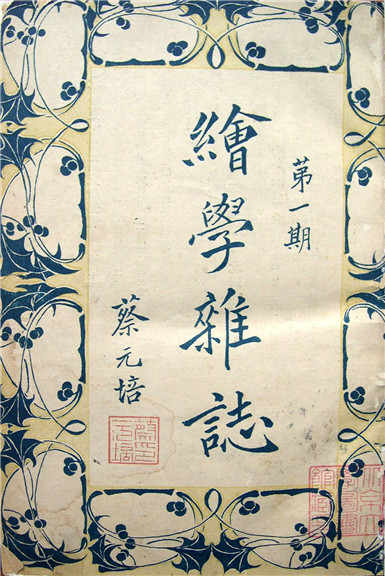 第一期
繪學雜誌
蔡元培